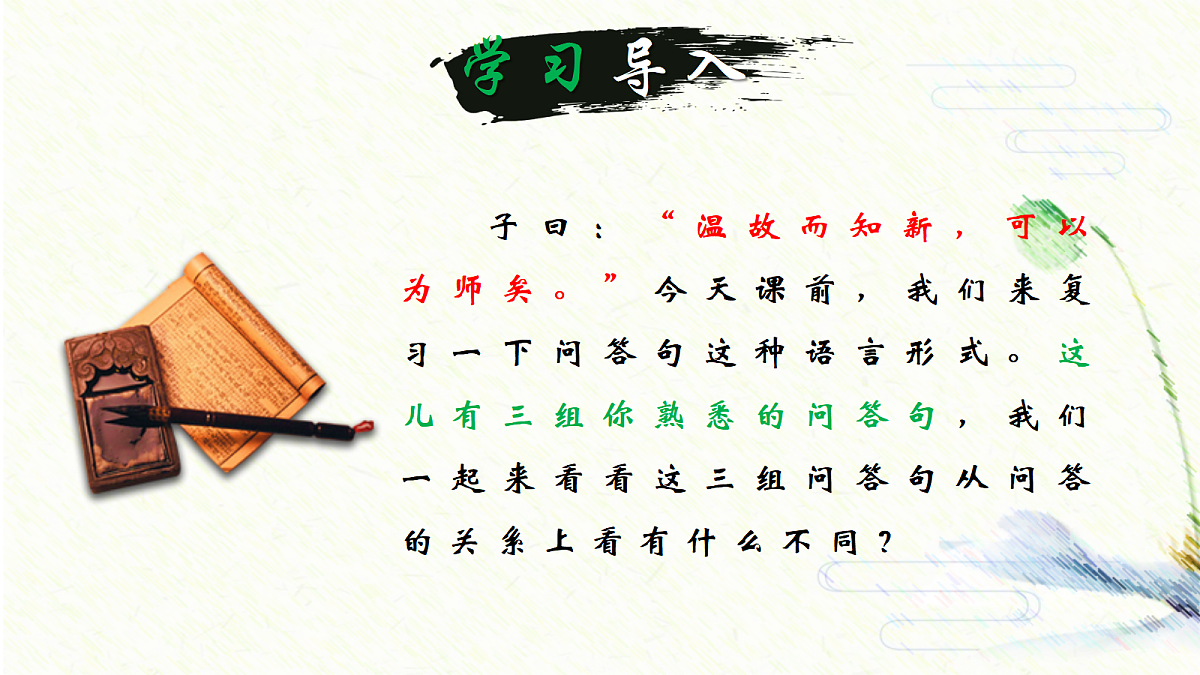 学习导入
子曰：“温故而知新，可以
为师矣。”今天课前，我们来复
习一下问答句这种语言形式。这
儿有三组你熟悉的问答句，我们
一起来看看这三组问答句从问答
的关系上看有什么不同？